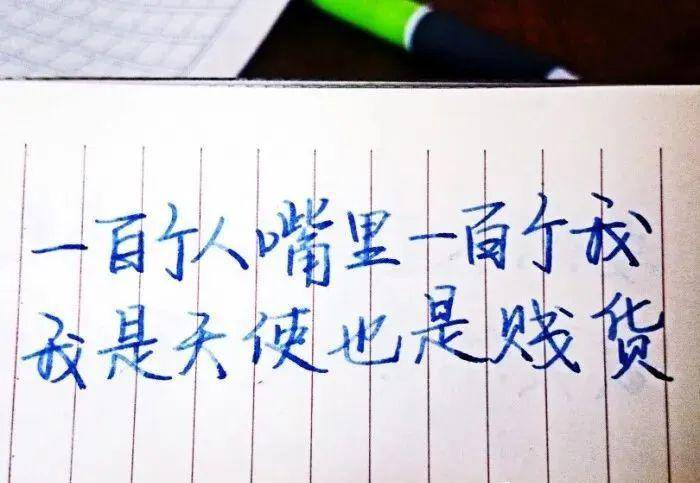 一百个人嘴里一百个我
我是天使也是贱货